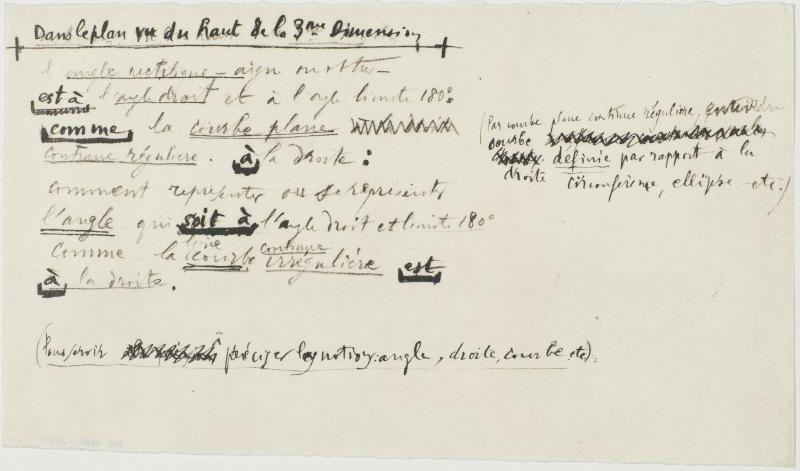 Dans le plan vu du haut de la 3me Dimension
l'angle rectiligne — aigu ou obtus —
est à l'angle droit et à l'angle limite 180°
comme la courbe plane
continue régulière. à la droite :
comment représenter ou se représenter
l'angle qui soit à l'angle droit et limite 180°
comme la courbe continue irrégulière est
à la droite.
(Par courbe plane continue régulière, entendre
courbe
définie par rapport à la
droite circonférence, ellipse etc.)
(Pour préciser les notions angle, droite, courbe etc).